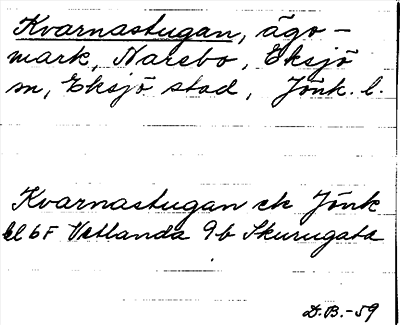 Kvarnastugan, ägo-
mark, Narebo, Eksjö
sn, Eksjö stad, Jönk. l.
Kvarnastugan ek Jönk
bl 6F Vetlanda 9b Skurugata
D.B.-59